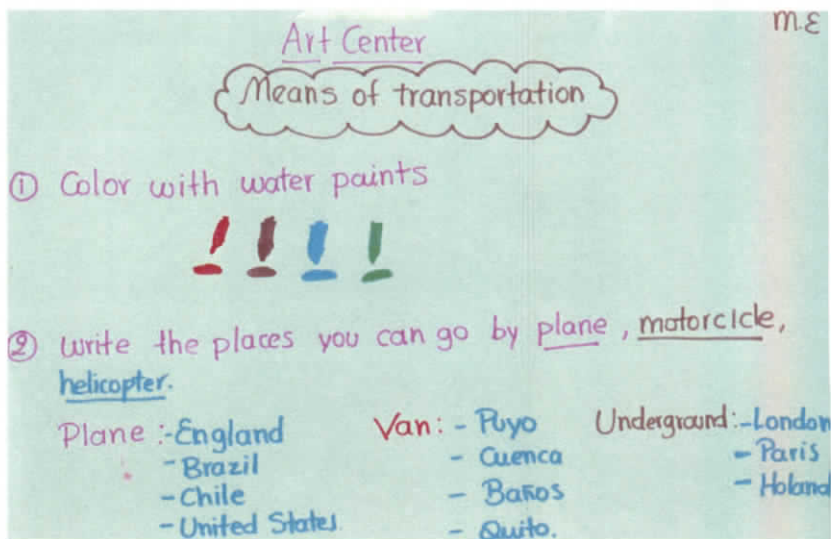 M.E
Art Center
Means of transportation
① Color with water paints
② Write the places you can go by plane, motorcicle,
helicopter.
Plane :-England
- Brazil
- Chile
- United States
Van: - Puyo
- Cuenca
- Baños
- Quito.
Underground:-London
- Paris
- Holand